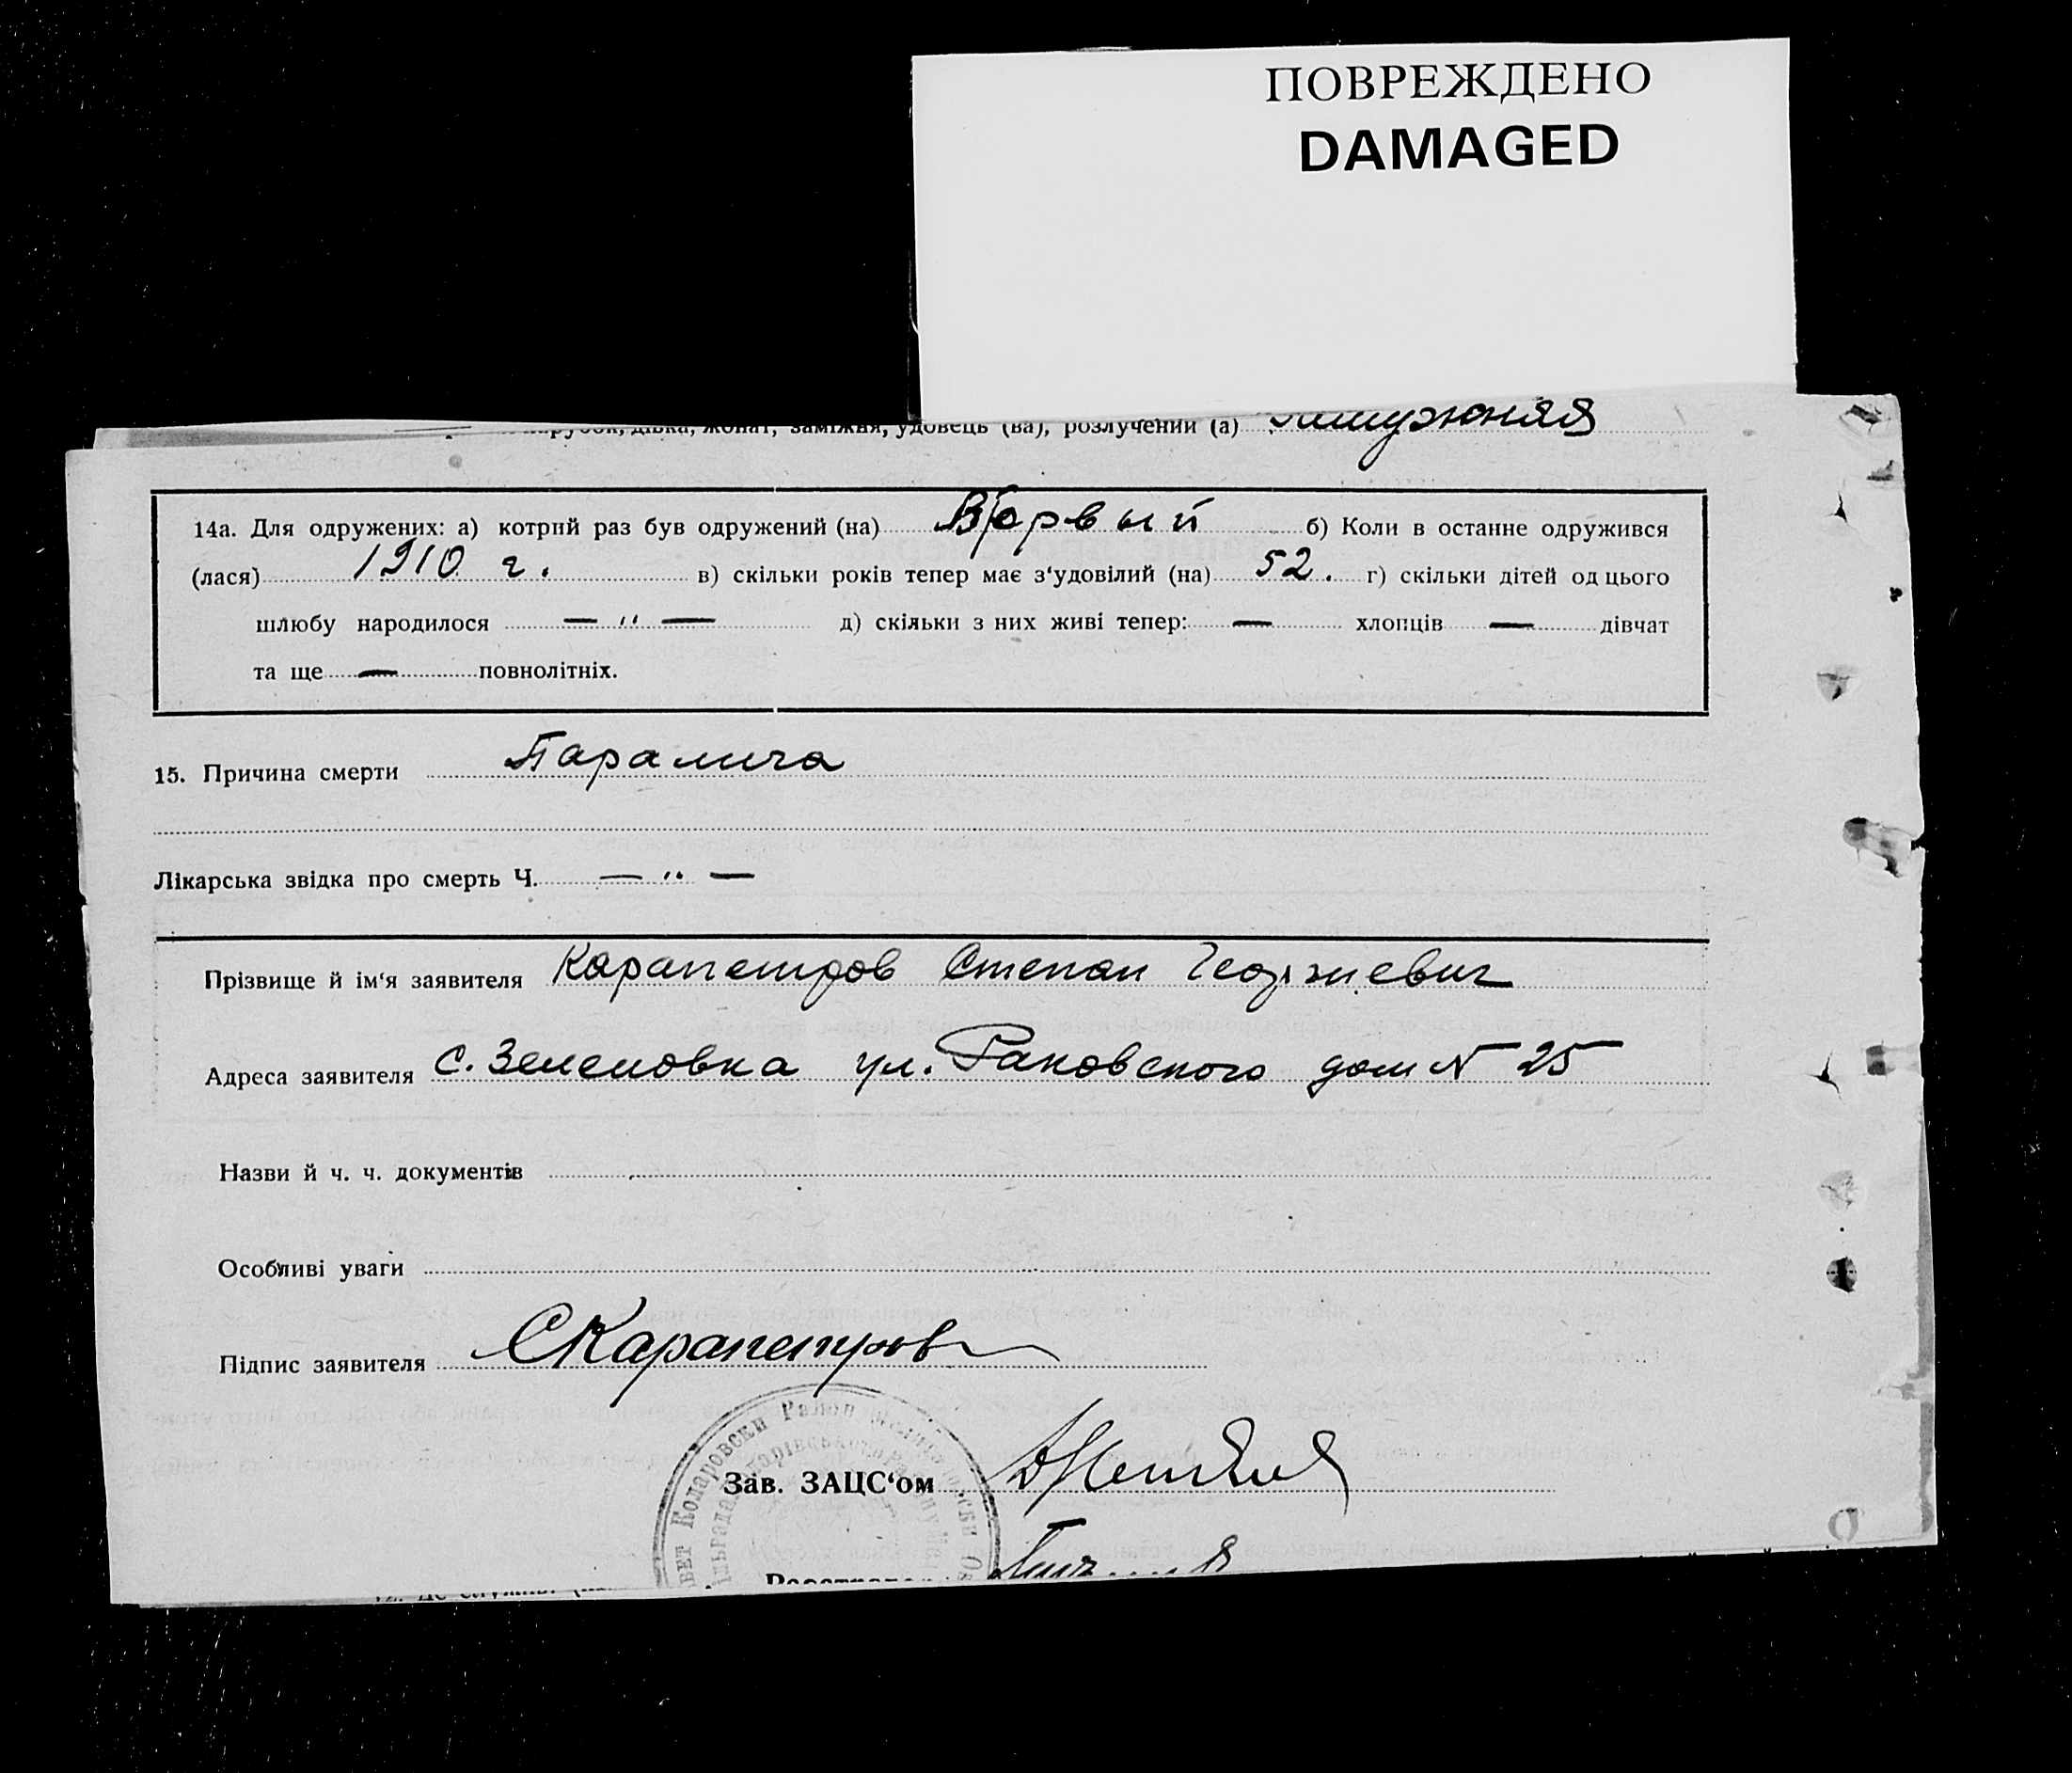 ПОВРЕЖДЕНО
DAMAGED
парубок, дівка, жонат, заміжня, удовець (ва), розлучений (а) Замужняя
14а. Для одружених: а) котрий раз був одружений (на) Первый б) Коли в останне одружився
(лася) 1910 г. в) скільки років тепер має з‘удовілий (на) 52. г) скільки дітей од цього
шлюбу народилося — „ — д) скільки з них живі тепер: — хлопців — дівчат
та ще — повнолітніх.
15. Причина смерти Паралича
Лікарська звідка про смерть Ч. — „ —
Прізвище й ім‘я заявителя Карапетров Степан Георгиевич
Адреса заявителя с. Зеленовка ул. Раковского дом № 25
Назви й ч. ч. документів
Особливі уваги
Підпис заявителя СКарапетров
Коларовски Район
Зав. ЗАЦС‘ом